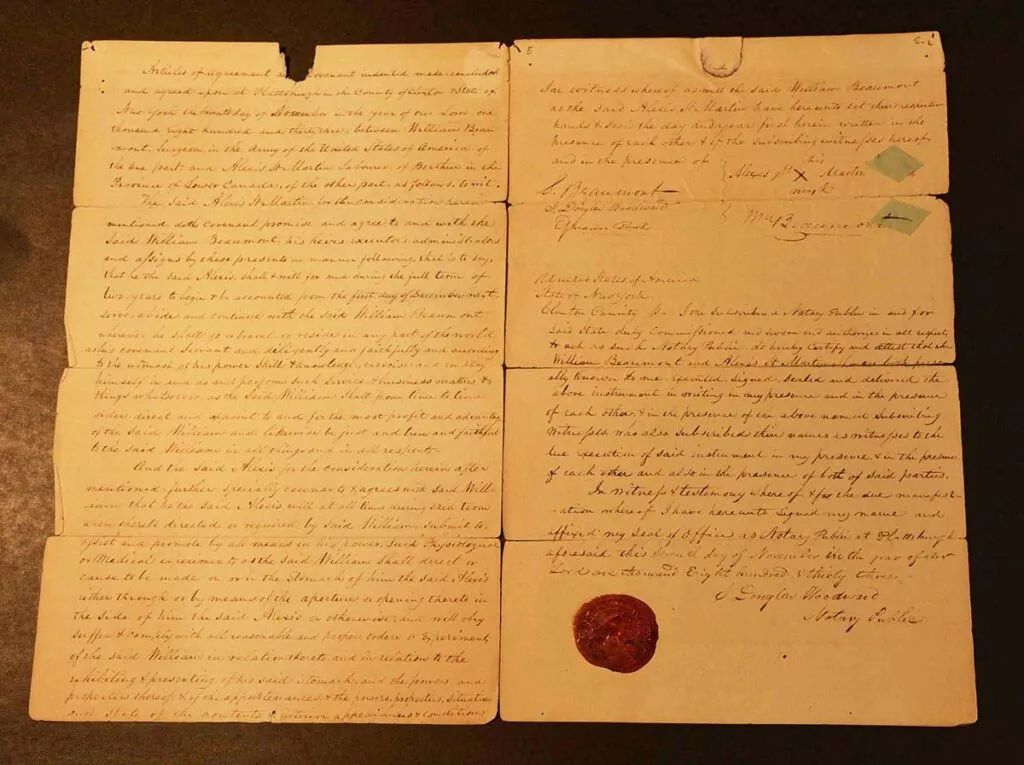 Articles of agreement and Covenant indented made concluded
and agreed upon at Plattsburgh in the County of Clinton & State of
New York the day of November in the year of our Lord one
thousand eight hundred and thirty three, between William Beau
mont, Surgeon in the Army of the United States of America of
the one part and Alexis St. Martin Labourer of Berthier in the
Province of Lower Canada, of the other part, as follows, to wit.
The Said Alexis St. Martin for the consideration herein
mentioned doth covenant promise and agree to and with the
Said William Beaumont, his heirs executors administrators
and assigns by these presents in manner following, that is to say,
that he the said Alexis, shall & will for and during the full term of
two years to begin & be accounted from the first day of December next
serve, abide and continue with the said William Beaumont
wherever he shall go or travel or reside in any part of the world
as his covenant Servant and diligently and faithfully and according
to the utmost of his power skill & knowledge, exercise and employ
himself in and perform such Service & business matters &
things whatsoever as the Said William Shall from time to time
order, direct and appoint to and for the most profit and advantage
of the Said William and likewise be just and true and faithful
to the said William in all things and in all respects.
And the said Alexis for the consideration herein after
mentioned further specially covenants & agrees with said Will-
iam that he the said Alexis will at all times during said term
when thereto directed or required by said William, Submit to,
assist and promote by all means in his power, such Physiological
or Medical experiments as the said William Shall direct or
cause to be made on or in the Stomach of him the said Alexis
either through or by means of the aperture or opening thereto in
the Side of him the said Alexis or otherwise, and will obey
suffer & comply with all reasonable and proper orders or Experiments
of the said William in relation thereto and in relation to the
exhibiting & presenting of his said Stomach and the powers and
properties thereof & of the appurtenances, & the powers, properties, Situation
and State of the contents & interior appearances &
In witness whereof as well the said William Beaumont
as the said Alexis St. Martin have hereunto set their respective
hands & seals the day and year first herein written in the
presence of each other & of the subscribing witnesses hereof
and in the presence of
his
Alexis St. X Martin
mark
S. Beaumont
J. Douglas Woodward
Ephraim
Wm Beaumont
United States of America
State of New York
Clinton County I the Subscriber a Notary Public in and for
Said State duly Commissioned and sworn and authorized in all respects
to act as such Notary Public do hereby Certify and attest that the
William Beaumont and Alexis St Martin who are both person
ally known to me executed signed, sealed and delivered the
above instrument in writing in my presence and in the presence
of each other, & in the presence of the above named Subscribing
Witnesses, who also Subscribed their names as witnesses to the
due execution of said instrument in my presence & in the presence
of each other and also in the presence of both of said parties.
In witness & testimony whereof & for the due manifest-
ation whereof I have hereunto signed my name and
affixed my Seal of Office as Notary Public at Plattsburgh
aforesaid this day of November in the year of our
Lord one thousand Eight hundred & thirty three.
J Douglas Woodward
Notary Public